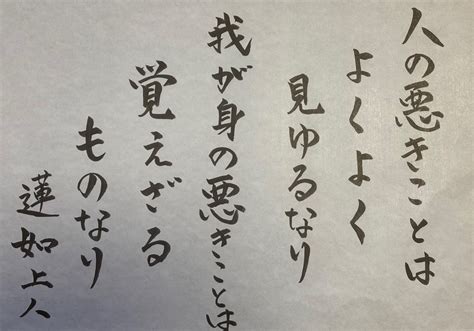 人の悪きことは
よくよく
見ゆるなり
我が身の悪きことは
覚えざる
ものなり
蓮如上人